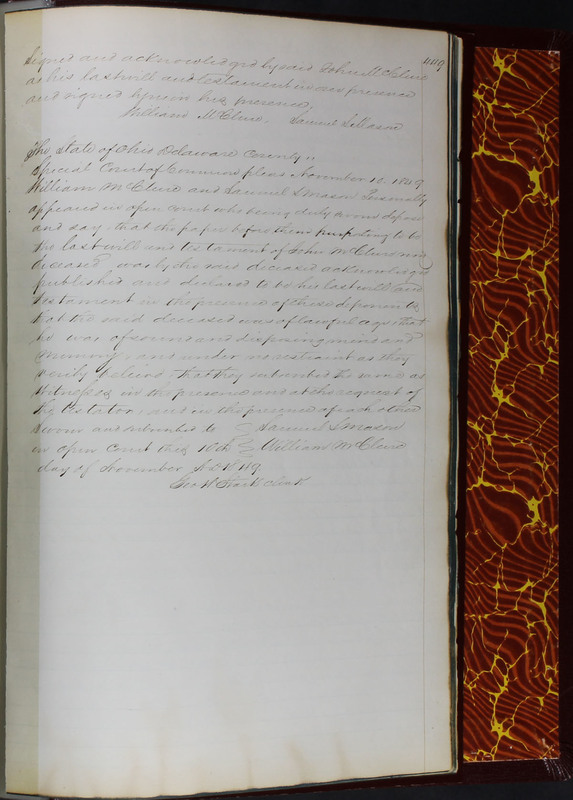 449
Signed and acknowledged by said John McClure
as his last will and testament in our presence
and signed by us in his presence,
William McClure. Samuel S Mason
The State of Ohio Delaware County ss
Special Court of Common pleas November 10. 1849
William McClure and Samuel S Mason Personally
appeared in open court who being duly sworn depose
and say, that the paper before them purporting to be
the last will and testament of John McClure now
deceased was by the said deceased acknowledged
published and declared to be his last will and
testament in the presence of these deponents
that the said deceased was of lawful age that
he was of sound and disposing mind and
memory, and under no restraint as they
verily believe, that they subscribed the same as
witnesses in the presence and at the request of
the testator, and in the presence of each other
sworn and subscribed to Samuel S Mason
in open court this 10th William McClure
day of November AD 1849.
Geo W Stark Clerk